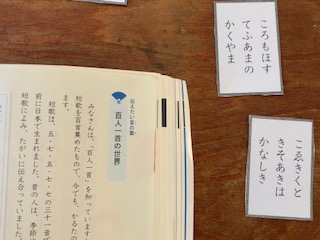 ころもほす
てふあまの
かくやま
こゑきくと
きそあきは
かなしき
伝えたい言の葉
百人一首の世界
みなさんは、「百人一首」を知っています
短歌を百首集めたもので、今でも、かるたの
ます。
短歌は、五・七・五・七・七の三十一音で
前に日本で生まれました。昔の人は、季節
短歌によみ、たがいに伝え合っていました